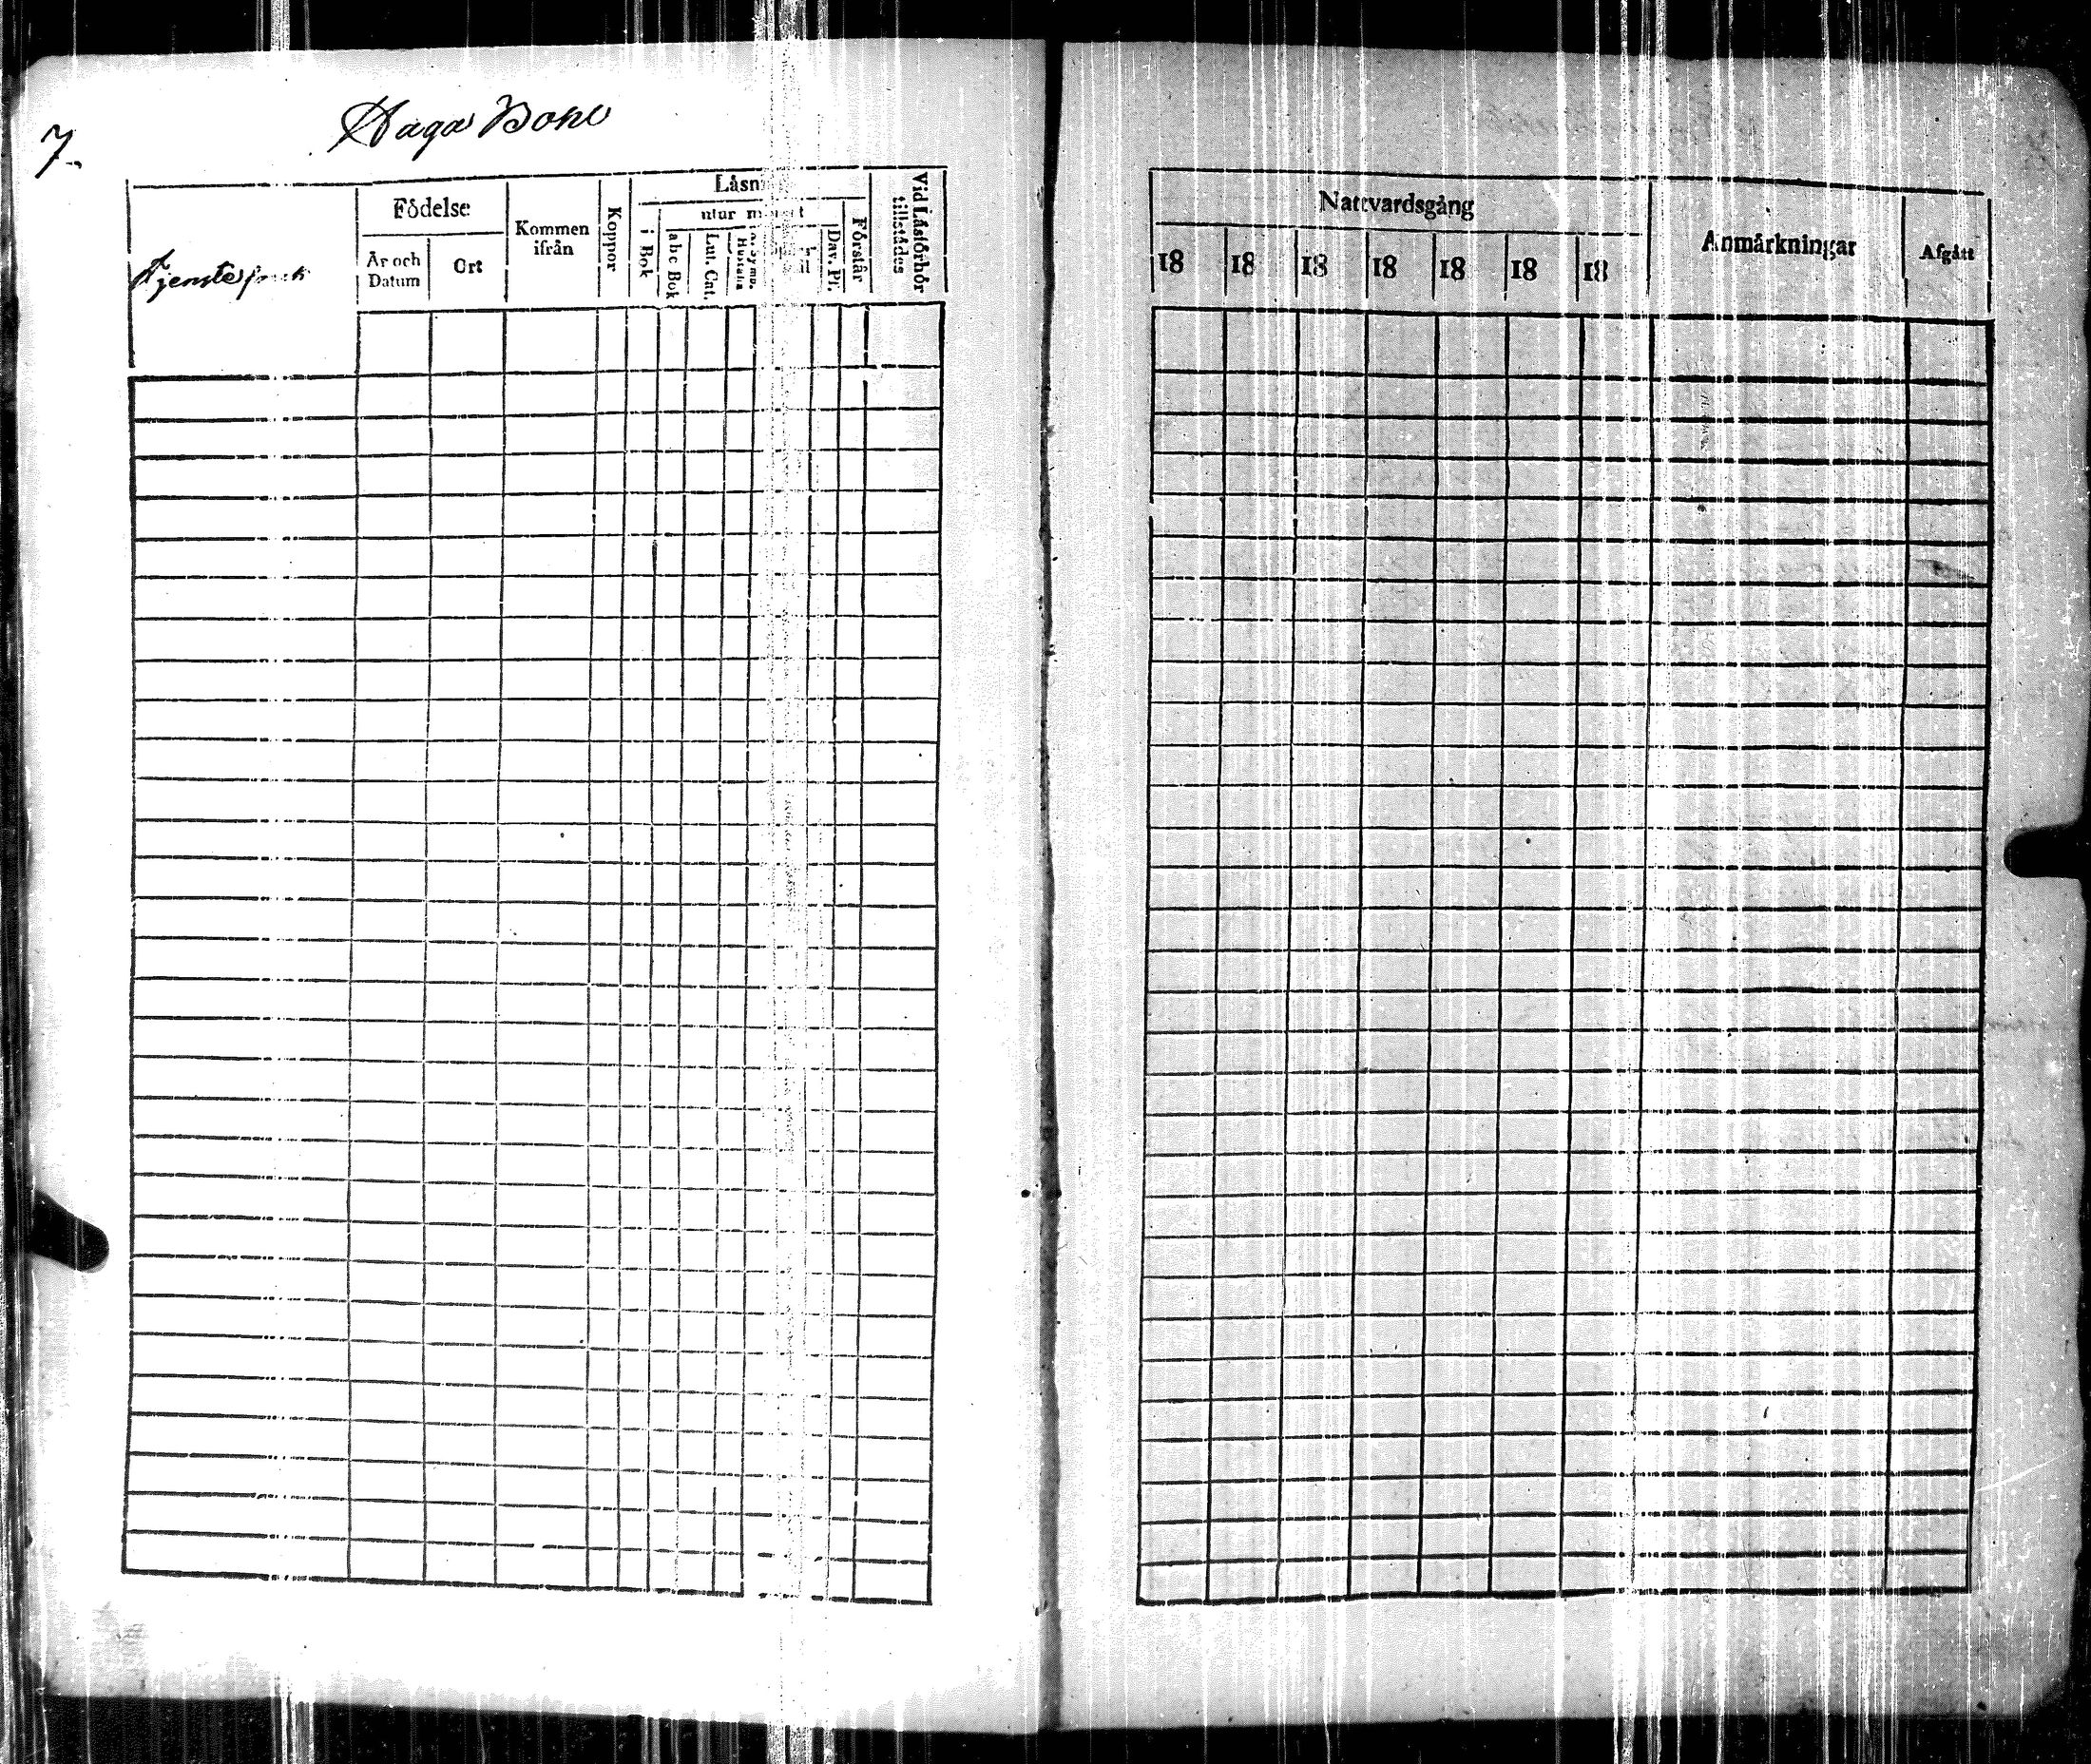 7.
Haga Bohl
Tjenstefolk
Födelse
År och Datum
Ort
Kommen ifrån
Koppor
Läsn
utur minnet
i Bok
abc Bok
Lut. Cat.
Hustafla
Dav. Ps.
Förstår
Vid Läsförhör tillstädes
Nattvardsgång
18 18 18 18 18 18 18
Anmärkningar
Afgått